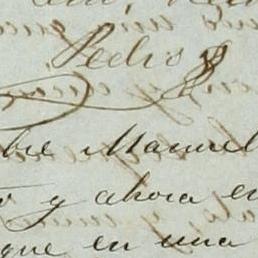 Pedro
bre Manuel
o y ahora en
que en una